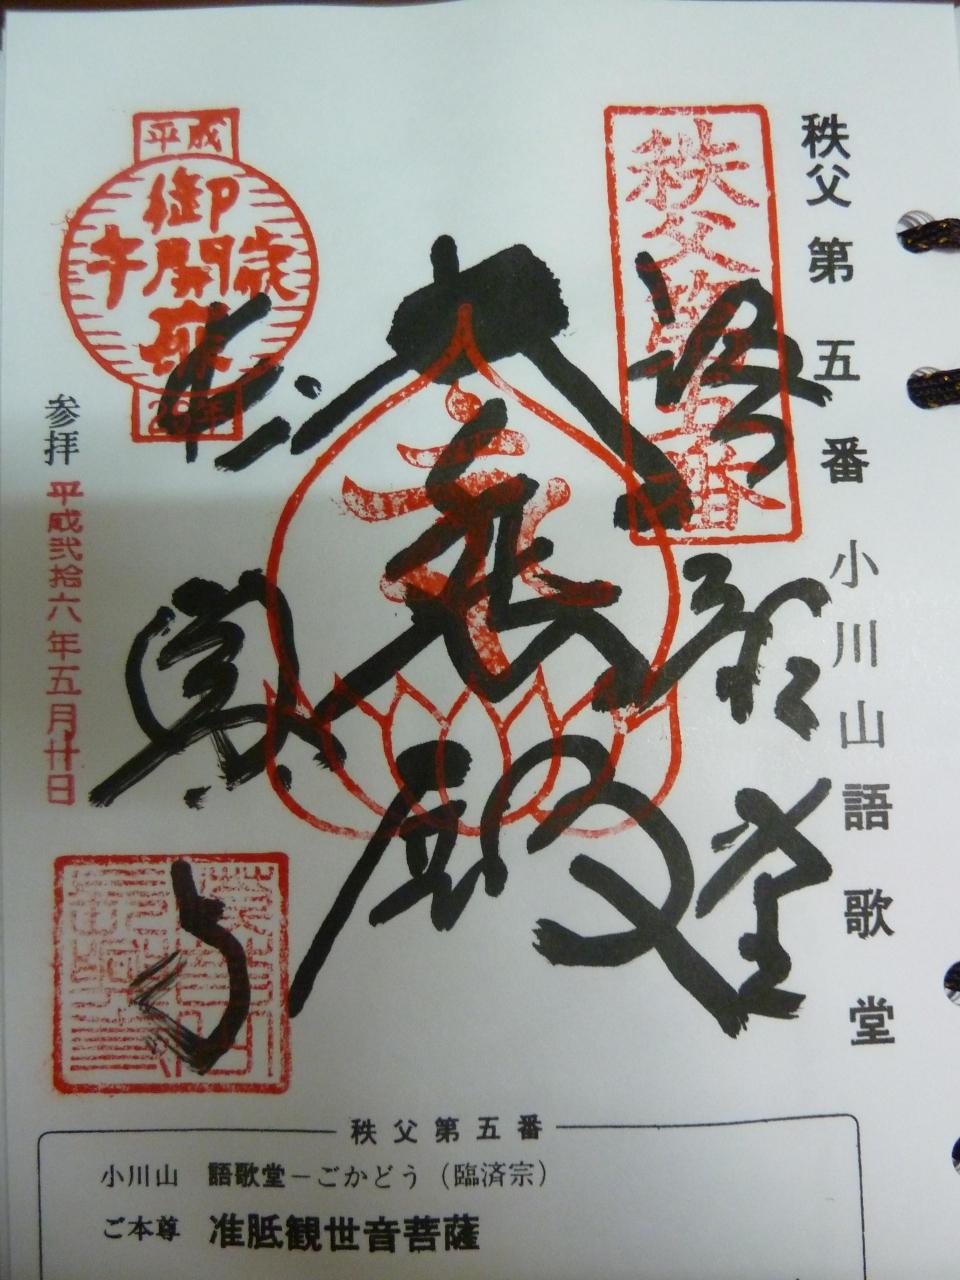 秩父第五番 小川山語歌堂
秩父第五番
語歌堂
大悲殿
平成
御開扉
午歳
26年
参拝 平成弐拾六年五月廿日
秩父第五番
小川山 語歌堂－ごかどう（臨済宗）
ご本尊 准胝観世音菩薩